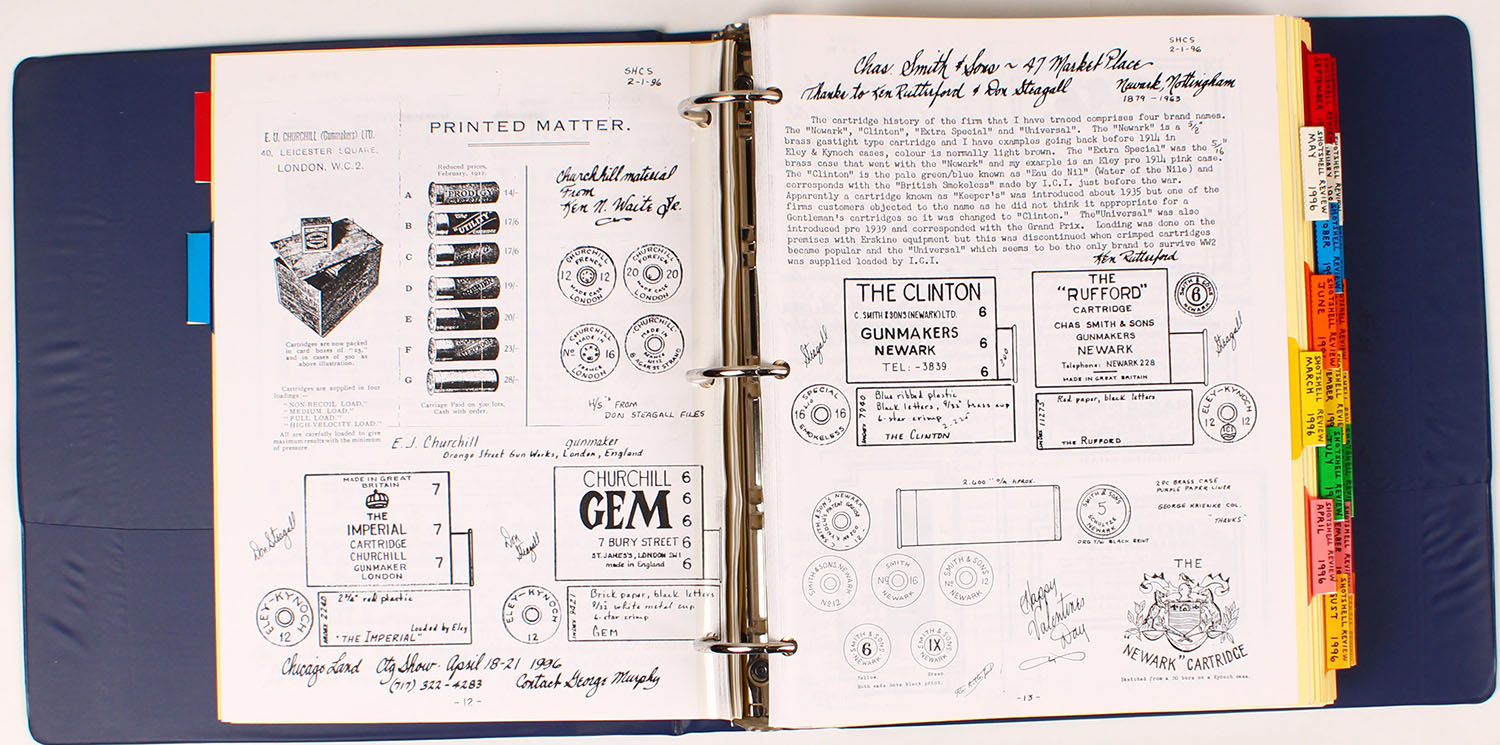 SHCS
2-1-96
E. J. CHURCHILL (Gunmakers) LTD.
40, LEICESTER SQUARE,
LONDON, W.C.2.
PRINTED MATTER.
Reduced prices,
February, 1922.
A PRODIGY 14/-
B "UTILITY" 17/6
C 17/6
D 19/-
E 20/-
F 23/-
G 28/-
Carriage Paid on 500 lots,
Cash with order.
Cartridges are now packed
in card boxes of "25,"
and in cases of 500 as
above illustration.
Cartridges are supplied in four
loadings:—
"NON-RECOIL LOAD,"
"MEDIUM LOAD,"
"FULL LOAD,"
"HIGH-VELOCITY LOAD."
All are carefully loaded to give
maximum results with the minimum
of pressure.
Churchhill material
From
Ken N. Waite Jr.
CHURCHILL
FRENCH
12 12
MADE CASE
LONDON
CHURCHILL
FOREIGN
20 20
MADE CASE
LONDON
CHURCHILL
No. MADE IN 16
FRANCE
LONDON
CHURCHILL
MADE IN
8 AGAR ST STRAND
H/S's FROM
DON STEAGALL FILES
E. J. Churchill gunmaker
Orange Street Gun Works, London, England
MADE IN GREAT
BRITAIN
7
THE
IMPERIAL 7
CARTRIDGE
CHURCHILL
GUNMAKER 7
LONDON
Don Steagall
ELEY-KYNOCH
12
2¾" red plastic
Loaded by Eley
"THE IMPERIAL"
CHURCHILL 6
GEM 6
6
7 BURY STREET 6
ST. JAMES'S, LONDON SW1
made in England 6
Don
Steagall
ELEY-KYNOCH
12
Brick paper, black letters
9/32 white metal cup
6-star crimp
GEM
Chicago Land Ctg Show - April 18-21 1996
(717) 322-4283 Contact George Murphy
-12-
SHCS
2-1-96
Chas. Smith & Sons ~ 47 Market Place
Thanks to Ken Rutterford & Don Steagall Newark, Nottingham
1879-1963
The cartridge history of the firm that I have traced comprises four brand names.
The "Newark", "Clinton", "Extra Special" and "Universal". The "Newark" is a 5/8"
brass gastight type cartridge and I have examples going back before 1914 in
Eley & Kynoch cases, colour is normally light brown. The "Extra Special" was the 5/16"
brass case that went with the "Newark" and my example is an Eley pre 1914 pink case.
The "Clinton" is the pale green/blue known as "Eau de Nil" (Water of the Nile) and
corresponds with the "British Smokeless" made by I.C.I. just before the war.
Apparently a cartridge known as "Keeper's" was introduced about 1935 but one of the
firms customers objected to the name as he did not think it appropriate for a
Gentleman's cartridges so it was changed to "Clinton." The"Universal" was also
introduced pre 1939 and corresponded with the Grand Prix. Loading was done on the
premises with Erskine equipment but this was discontinued when crimped cartridges
became popular and the "Universal" which seems to be the only brand to survive WW2
was supplied loaded by I.C.I.
Ken Rutterford
THE CLINTON
C. SMITH & SONS (NEWARK) LTD. 6
GUNMAKERS
NEWARK 6
TEL:-3839
6
Steagall
SPECIAL
16 16
SMOKELESS
Blue ribbed plastic
Black letters, 9/32" brass cup
6-star crimp
THE CLINTON
THE
"RUFFORD"
CARTRIDGE
CHAS SMITH & SONS
GUNMAKERS
NEWARK
Telephone: NEWARK 228
MADE IN GREAT BRITAIN
SMITH & SONS
6
NEWARK
Steagall
Red paper, black letters
THE RUFFORD
ELEY-KYNOCH
12 ICI 12
2.600" O/A APROX.
SMITH & SONS
5
SCHULTZE
NEWARK
2 PC BRASS CASE
PURPLE PAPER LINER
GEORGE KRIENKE COL.
THANKS
SMITH & SONS. NEWARK
No 12
SMITH
No 16
NEWARK
SMITH & SONS
No 12
NEWARK
SMITH & SONS
6
NEWARK
Yellow.
SMITH & SONS
IX
NEWARK
Green
Happy
Valentines
Day
THE
"NEWARK" CARTRIDGE
Sketched from a 20 bore on a Kynoch case.
-13-
SHOTSHELL REVIEW
MAY 1996
SHOTSHELL REVIEW
JUNE
SHOTSHELL REVIEW
MARCH 1996
SHOTSHELL REVIEW
APRIL 1996